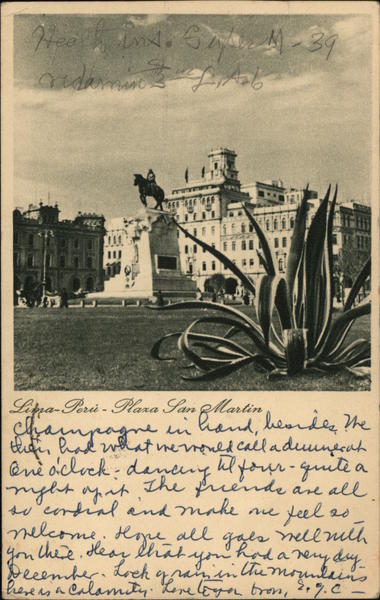 Health ins. Super M-39
L.A.6
Lima-Perú - Plaza San Martin
Champagne in hand, besides. We
then had what we would call a dinner at
One o'clock - dancing til four - quite a
night of it. The friends are all
so cordial and make me feel so
welcome. Hope all goes well with
you there. Hear that you had a very dry
December. Lack of rain in the mountains
here is a calamity. Love to you